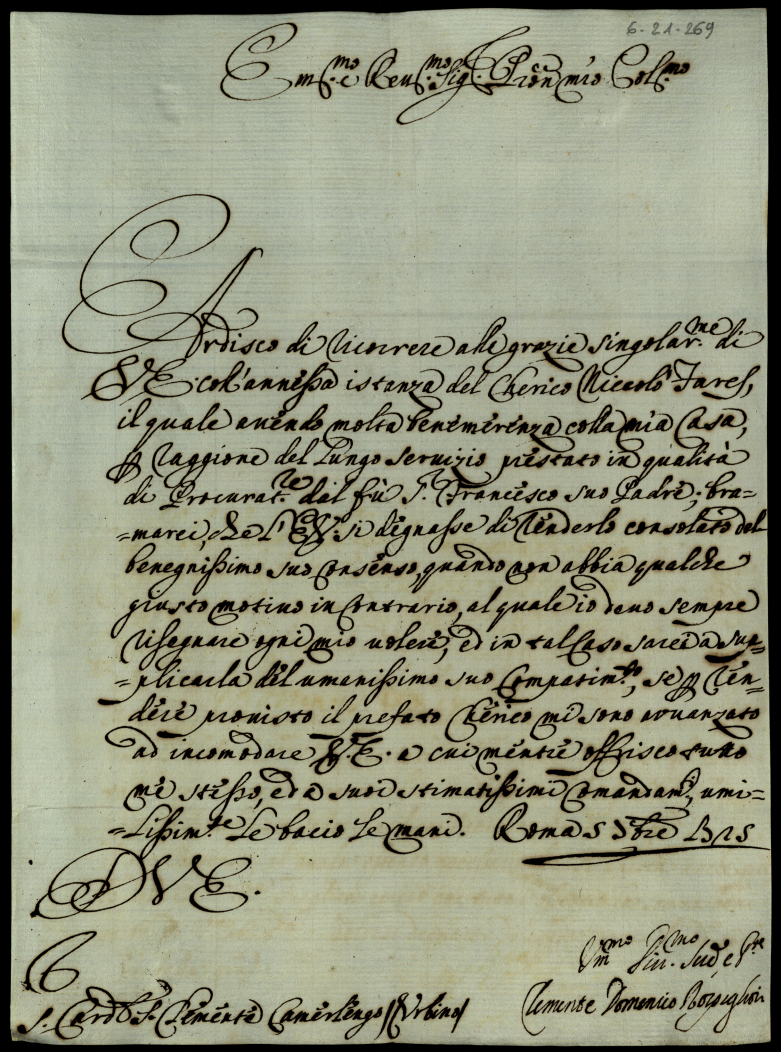 6-21-269
Em.mo e Reu.mo Sig.r Pron mio Col.mo
Ardisco di ricorrere alle grazie singolar.me di
V.E. coll'annessa istanza del Cherico Niccolò
il quale auendo molta benemerenza colla mia Casa,
p raggione del lungo seruizio prestato in qualità
di Procurat.re dal fù S. Francesco suo Padre; bra=
=marei, che l'E.V. si degnasse di renderlo consolato del
benegnissimo suo consenso, quando non abbia qualche
giusto motiuo in contrario, al quale io deuo sempre
risegnare ogni mio uolere; ed in tal Caso sarei a sup=
=plicarla del umanissimo suo Compatim.to, se p ren=
dere prouisto il prefato Cherico mi sono auuanzato
ad incomodare V.E. a cui mentre offrisco tutto
me stesso, ed a suoi stimatissimi Comandam.ti, umi=
=lissim.te le bacio le mani. Roma 5
D V E.
S. Card. S. Clemente Camerlengo / Urbino /
Um.mo Diu.mo Seru.
Clemente Domenico Rospigliosi